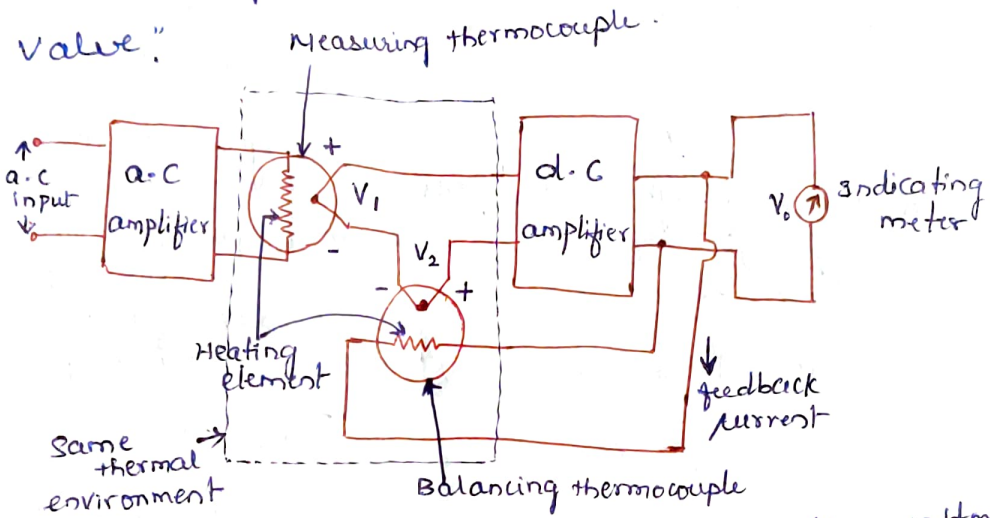 Value:
Measuring thermocouple.
a.c
input
a.c
amplifier
+
-
V1
V2
-
+
d.c
amplifier
V0
Indicating
meter
Heating
element
feedback
current
Same
thermal
environment
Balancing thermocouple